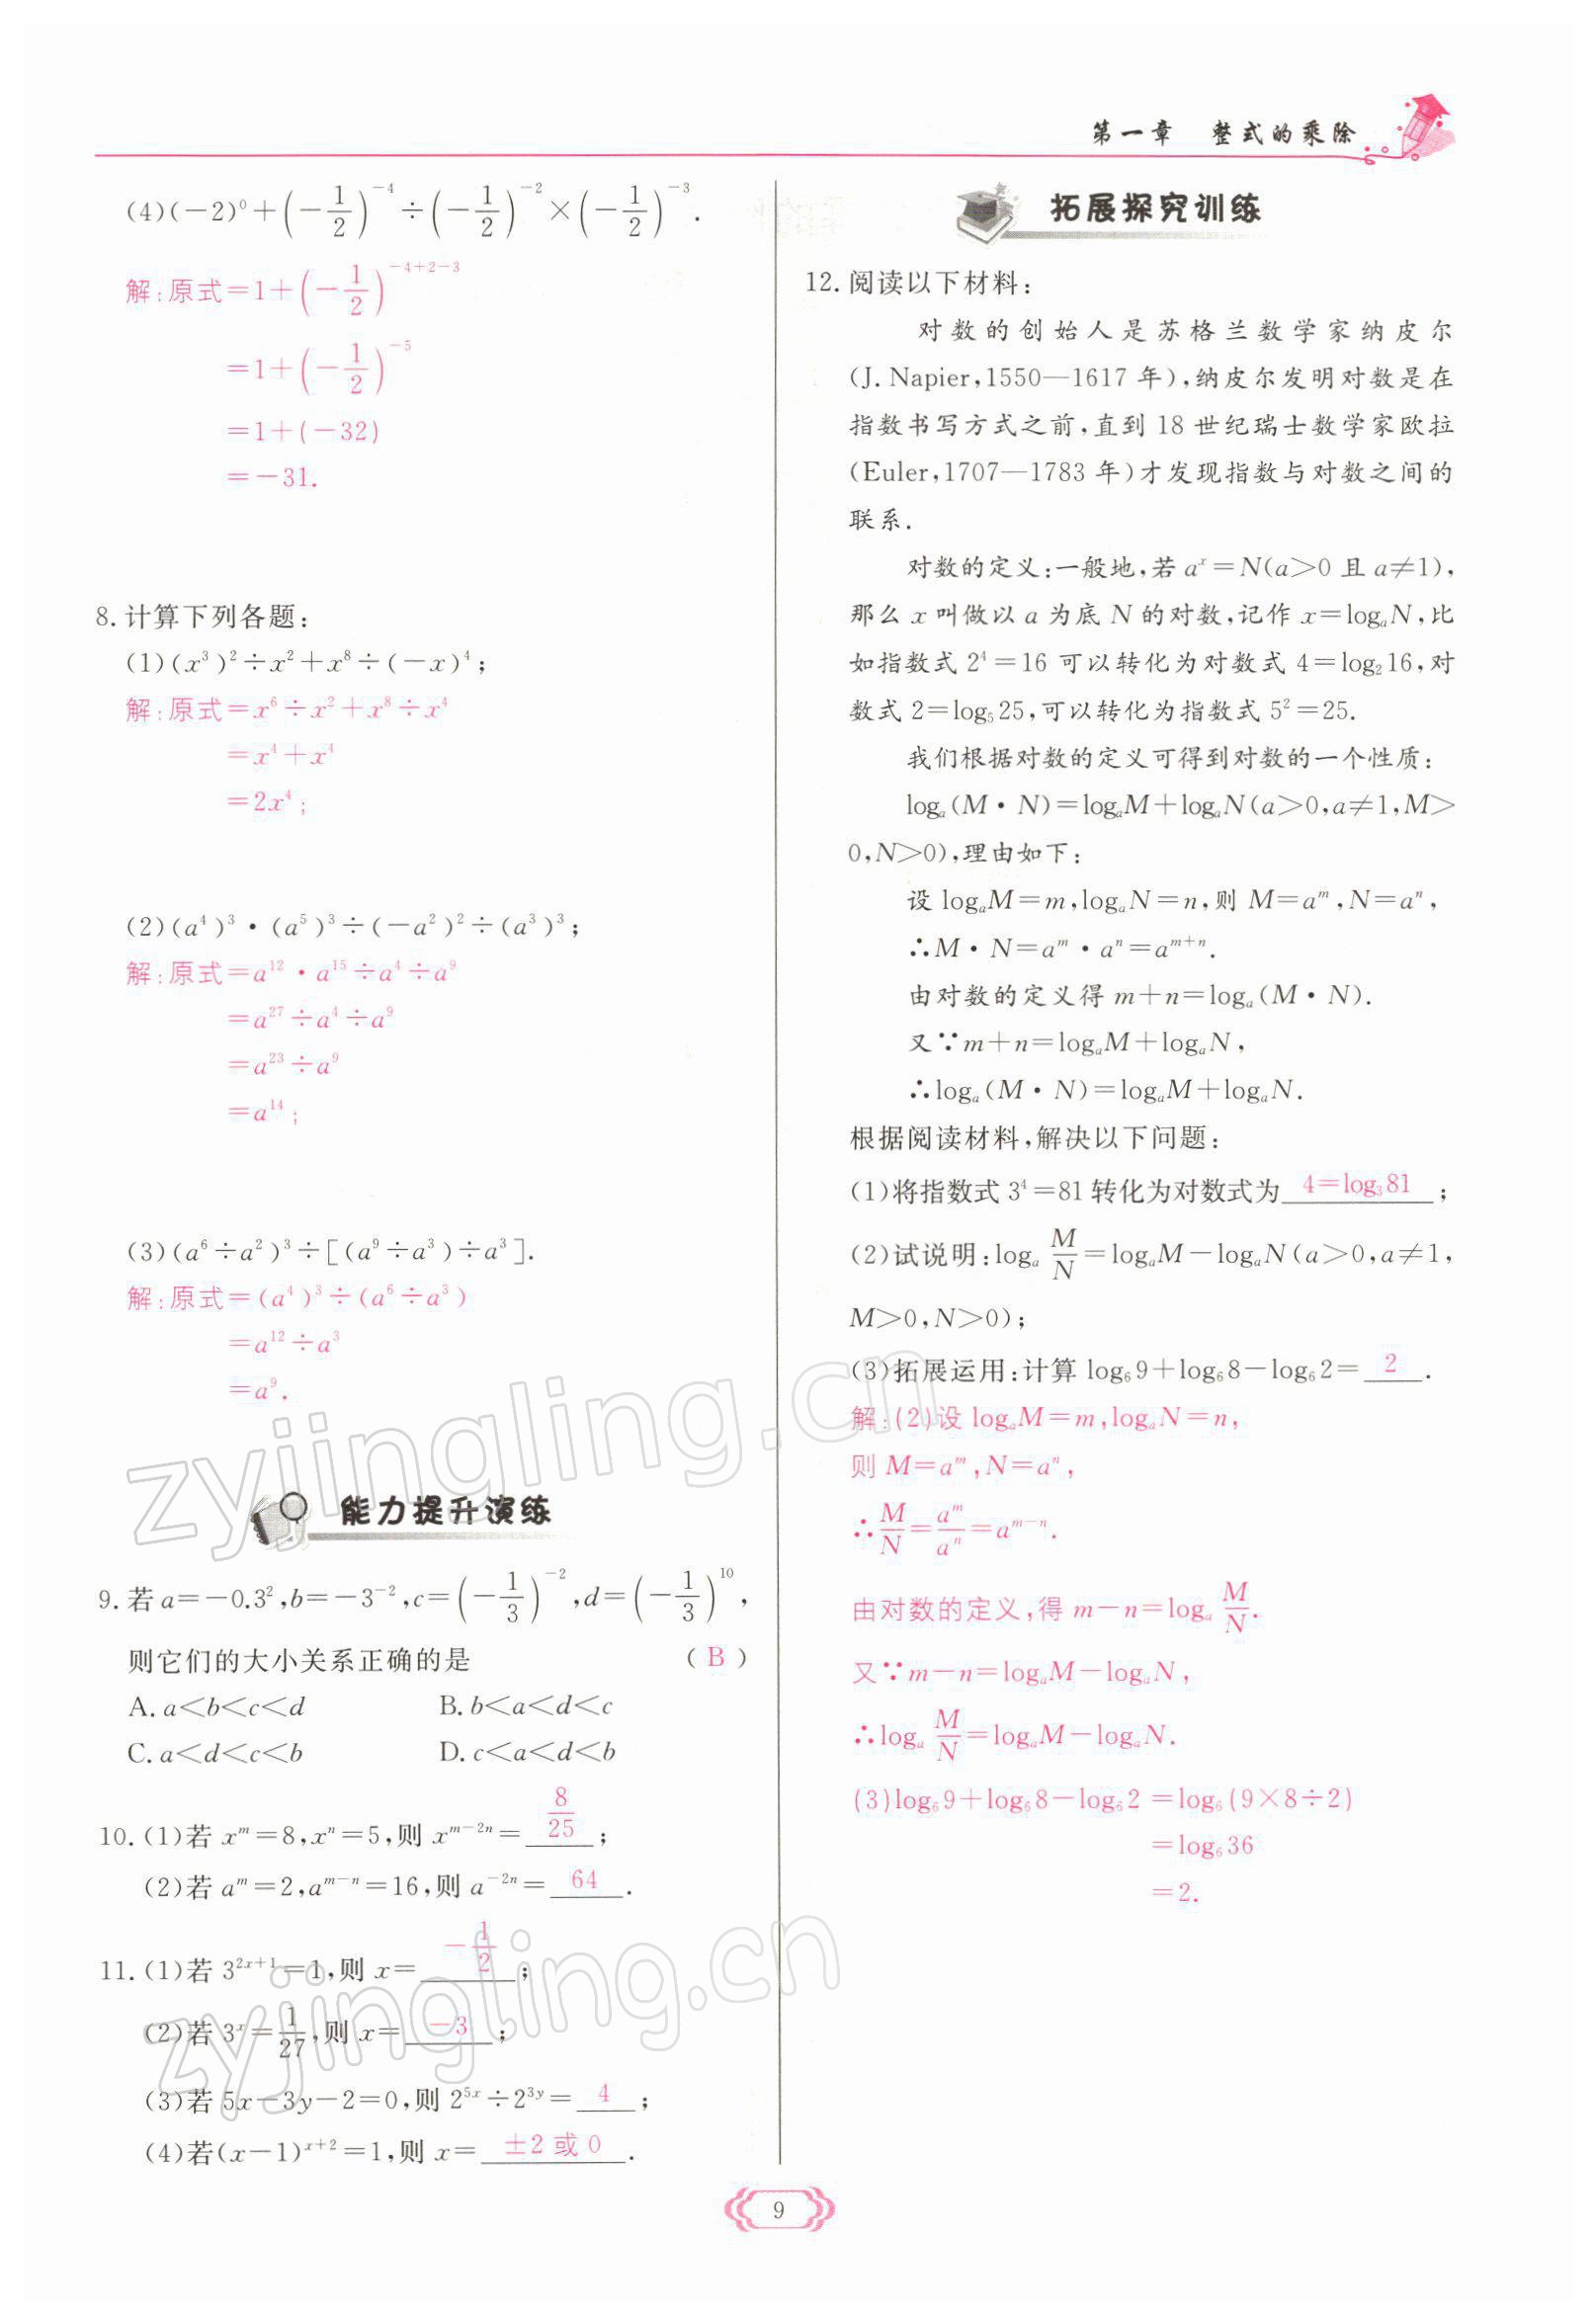 第一章 整式的乘除
(4)(-2)⁰+(-1/2)⁻⁴÷(-1/2)⁻²×(-1/2)⁻³.
解:原式=1+(-1/2)⁻⁴⁺²⁻³
=1+(-1/2)⁻⁵
=1+(-32)
=-31.
8.计算下列各题:
(1)(x³)²÷x²+x⁸÷(-x)⁴;
解:原式=x⁶÷x²+x⁸÷x⁴
=x⁴+x⁴
=2x⁴;
(2)(a⁴)³·(a⁵)³÷(-a²)²÷(a³)³;
解:原式=a¹²·a¹⁵÷a⁴÷a⁹
=a²⁷÷a⁴÷a⁹
=a²³÷a⁹
=a¹⁴;
(3)(a⁶÷a²)³÷[(a⁹÷a³)÷a³].
解:原式=(a⁴)³÷(a⁶÷a³)
=a¹²÷a³
=a⁹.
能力提升演练
9.若a=-0.3²,b=-3⁻²,c=(-1/3)⁻²,d=(-1/3)¹⁰,
则它们的大小关系正确的是 (B)
A.a<b<c<d B.b<a<d<c
C.a<d<c<b D.c<a<d<b
10.(1)若xᵐ=8,xⁿ=5,则xᵐ⁻²ⁿ=8/25;
(2)若aᵐ=2,aᵐ⁻ⁿ=16,则a⁻²ⁿ=64.
11.(1)若3²ˣ⁺¹=1,则x=-1/2;
(2)若3ˣ=1/27,则x=-3;
(3)若5x-3y-2=0,则2⁵ˣ÷2³ʸ=4;
(4)若(x-1)ˣ⁺²=1,则x=±2或0.
拓展探究训练
12.阅读以下材料:
对数的创始人是苏格兰数学家纳皮尔
(J.Napier,1550—1617年),纳皮尔发明对数是在
指数书写方式之前,直到18世纪瑞士数学家欧拉
(Euler,1707—1783年)才发现指数与对数之间的
联系.
对数的定义:一般地,若aˣ=N(a>0且a≠1),
那么x叫做以a为底N的对数,记作x=logₐN,比
如指数式2⁴=16可以转化为对数式4=log₂16,对
数式2=log₅25,可以转化为指数式5²=25.
我们根据对数的定义可得到对数的一个性质:
logₐ(M·N)=logₐM+logₐN(a>0,a≠1,M>
0,N>0),理由如下:
设logₐM=m,logₐN=n,则M=aᵐ,N=aⁿ,
∴M·N=aᵐ·aⁿ=aᵐ⁺ⁿ.
由对数的定义得m+n=logₐ(M·N).
又∵m+n=logₐM+logₐN,
∴logₐ(M·N)=logₐM+logₐN.
根据阅读材料,解决以下问题:
(1)将指数式3⁴=81转化为对数式为4=log₃81;
(2)试说明:logₐ M/N=logₐM-logₐN(a>0,a≠1,
M>0,N>0);
(3)拓展运用:计算log₆9+log₆8-log₆2=2.
解:(2)设logₐM=m,logₐN=n,
则M=aᵐ,N=aⁿ,
∴M/N=aᵐ/aⁿ=aᵐ⁻ⁿ.
由对数的定义,得m-n=logₐ M/N.
又∵m-n=logₐM-logₐN,
∴logₐ M/N=logₐM-logₐN.
(3)log₆9+log₆8-log₆2=log₆(9×8÷2)
=log₆36
=2.
9
zyjingling.cn
zyjingling.cn